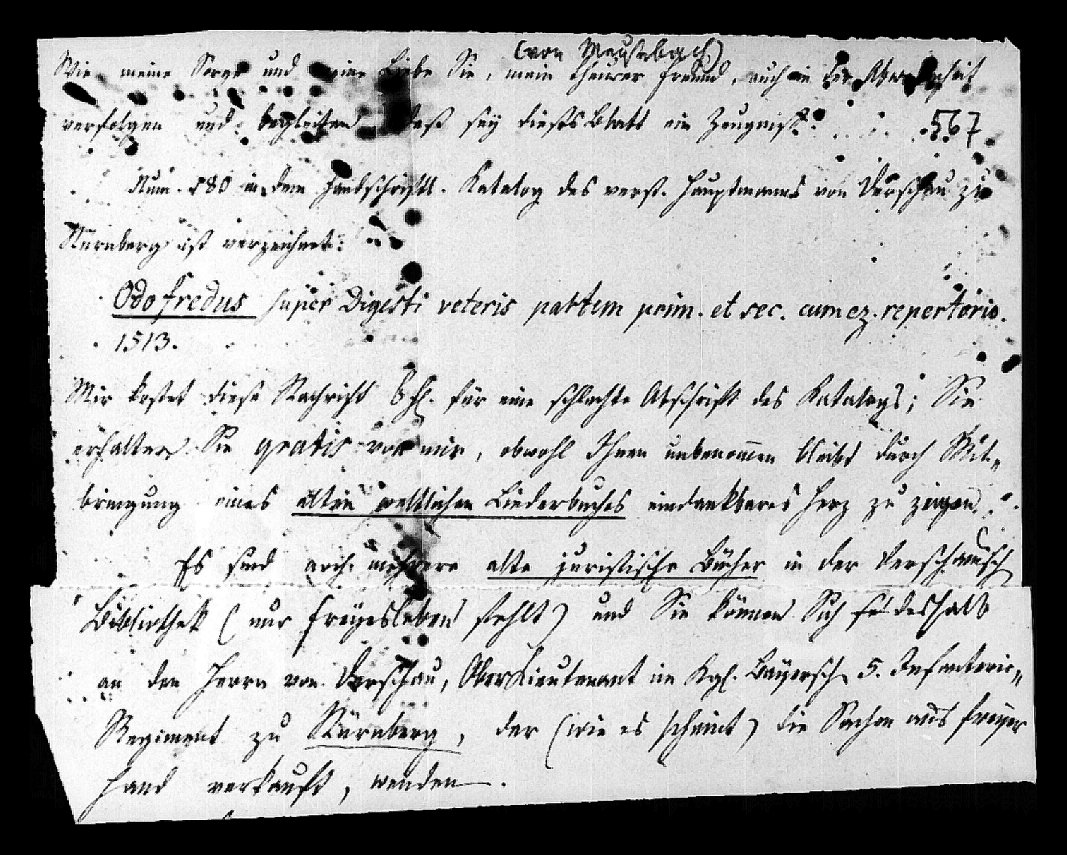 (von Meusebach)
Wie meine Sorge und meine Liebe Sie, mein theurer Freund, auch in der Abwesenheit
verfolgen und begleiten, deß sey dieses Blatt ein Zeugniß.
567
Num. 580 in dem handschriftl. Katalog des verst. Hauptmanns von Derschau zu
Nürnberg ist verzeichnet:
Odofredus super Digesti veteris partem prim. et sec. cum ez. repertorio.
1513.
Mir kostet diese Nachricht für eine schlechte Abschrift des Katalogs; Sie
erhalten Sie gratis von mir, obwohl Ihnen unbenommen bleibt durch Mit-
bringung eines alten weltlichen Liederbuches ein dankbares Herz zu zeigen.
Es sind noch mehrere alte juristische Bücher in der Derschauisch
Bibliothek (nur Freyesleben fehlt) und Sie können Sich deshalb
an den Herrn von Derschau, OberLieutenant im Kgl. Bayersch 5. Infanterie-
Regiment zu Nürnberg, der (wie es scheint) die Sachen aus freyer
Hand verkauft, wenden.